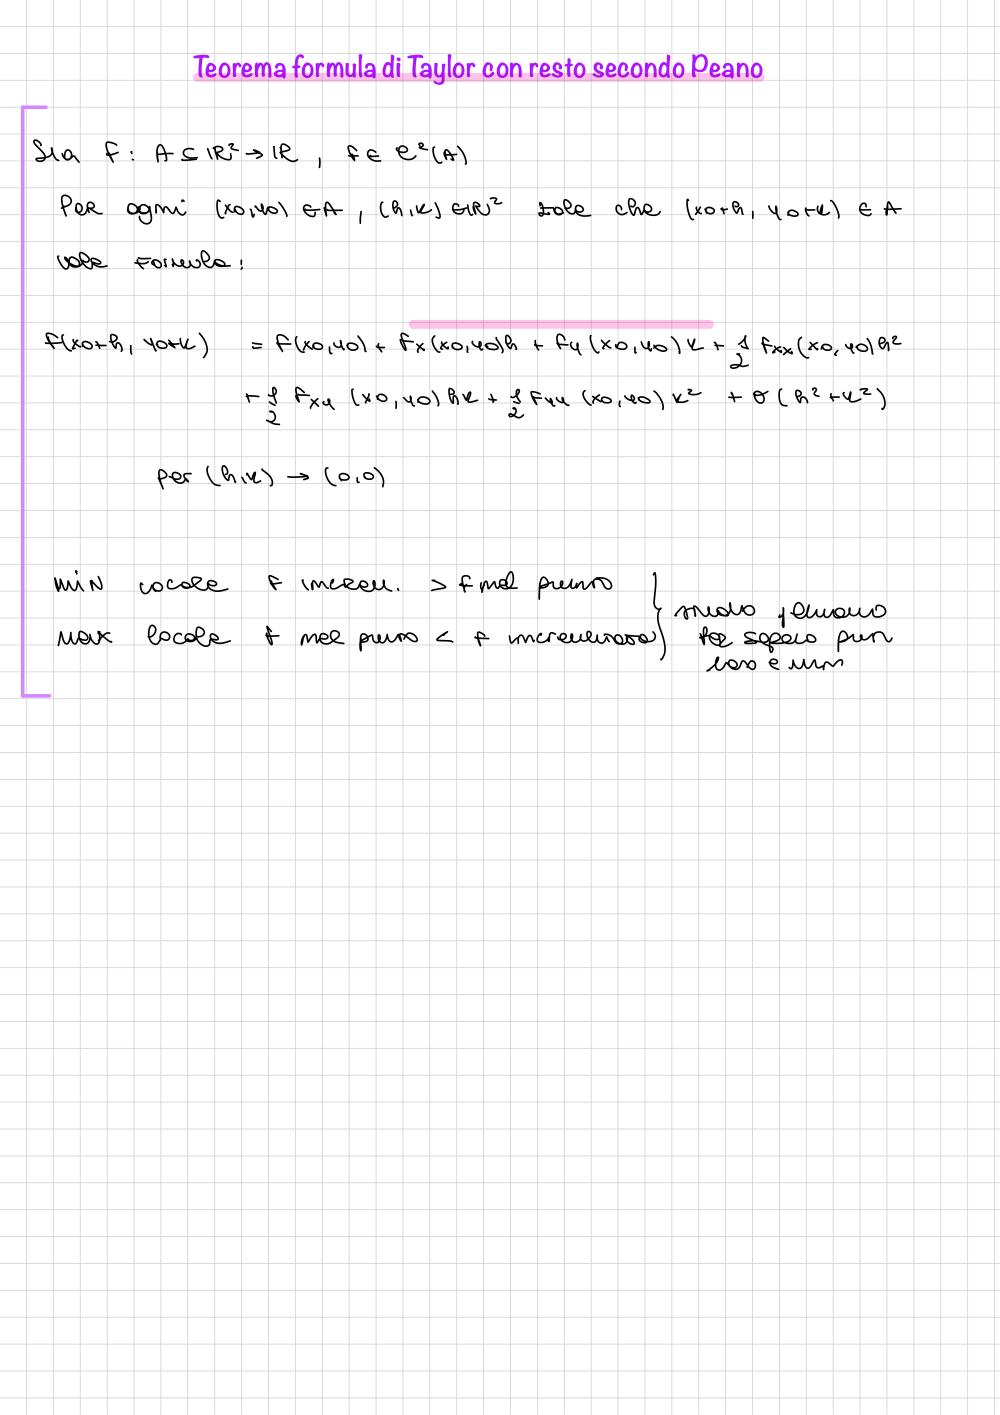 Teorema formula di Taylor con resto secondo Peano
Sia f: A ⊆ ℝ² → ℝ, f ∈ C²(A)
Per ogni (x0,y0) ∈ A, (h,k) ∈ ℝ² tale che (x0+h, y0+k) ∈ A
vale formula:
f(x0+h, y0+k) = f(x0,y0) + fx(x0,y0)h + fy(x0,y0)k + 1/2 fxx(x0,y0)h²
+ 1/2 fxy(x0,y0)hk + 1/2 fyy(x0,y0)k² + o(h²+k²)
per (h,k) → (0,0)
min locale f increm. > f nel punto
max locale f nel punto < f incrementata
studio
punti
e